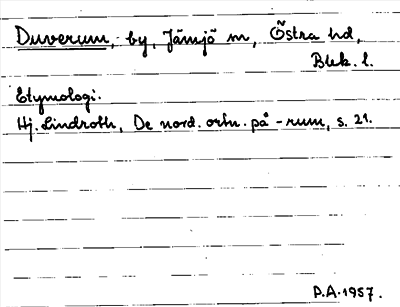 Duverum, by, Jämjö sn, Östra hd,
Blek. l.
Etymologi.
Hj. Lindroth, De nord. ortn. på -rum, s. 21.
P.A. 1957.